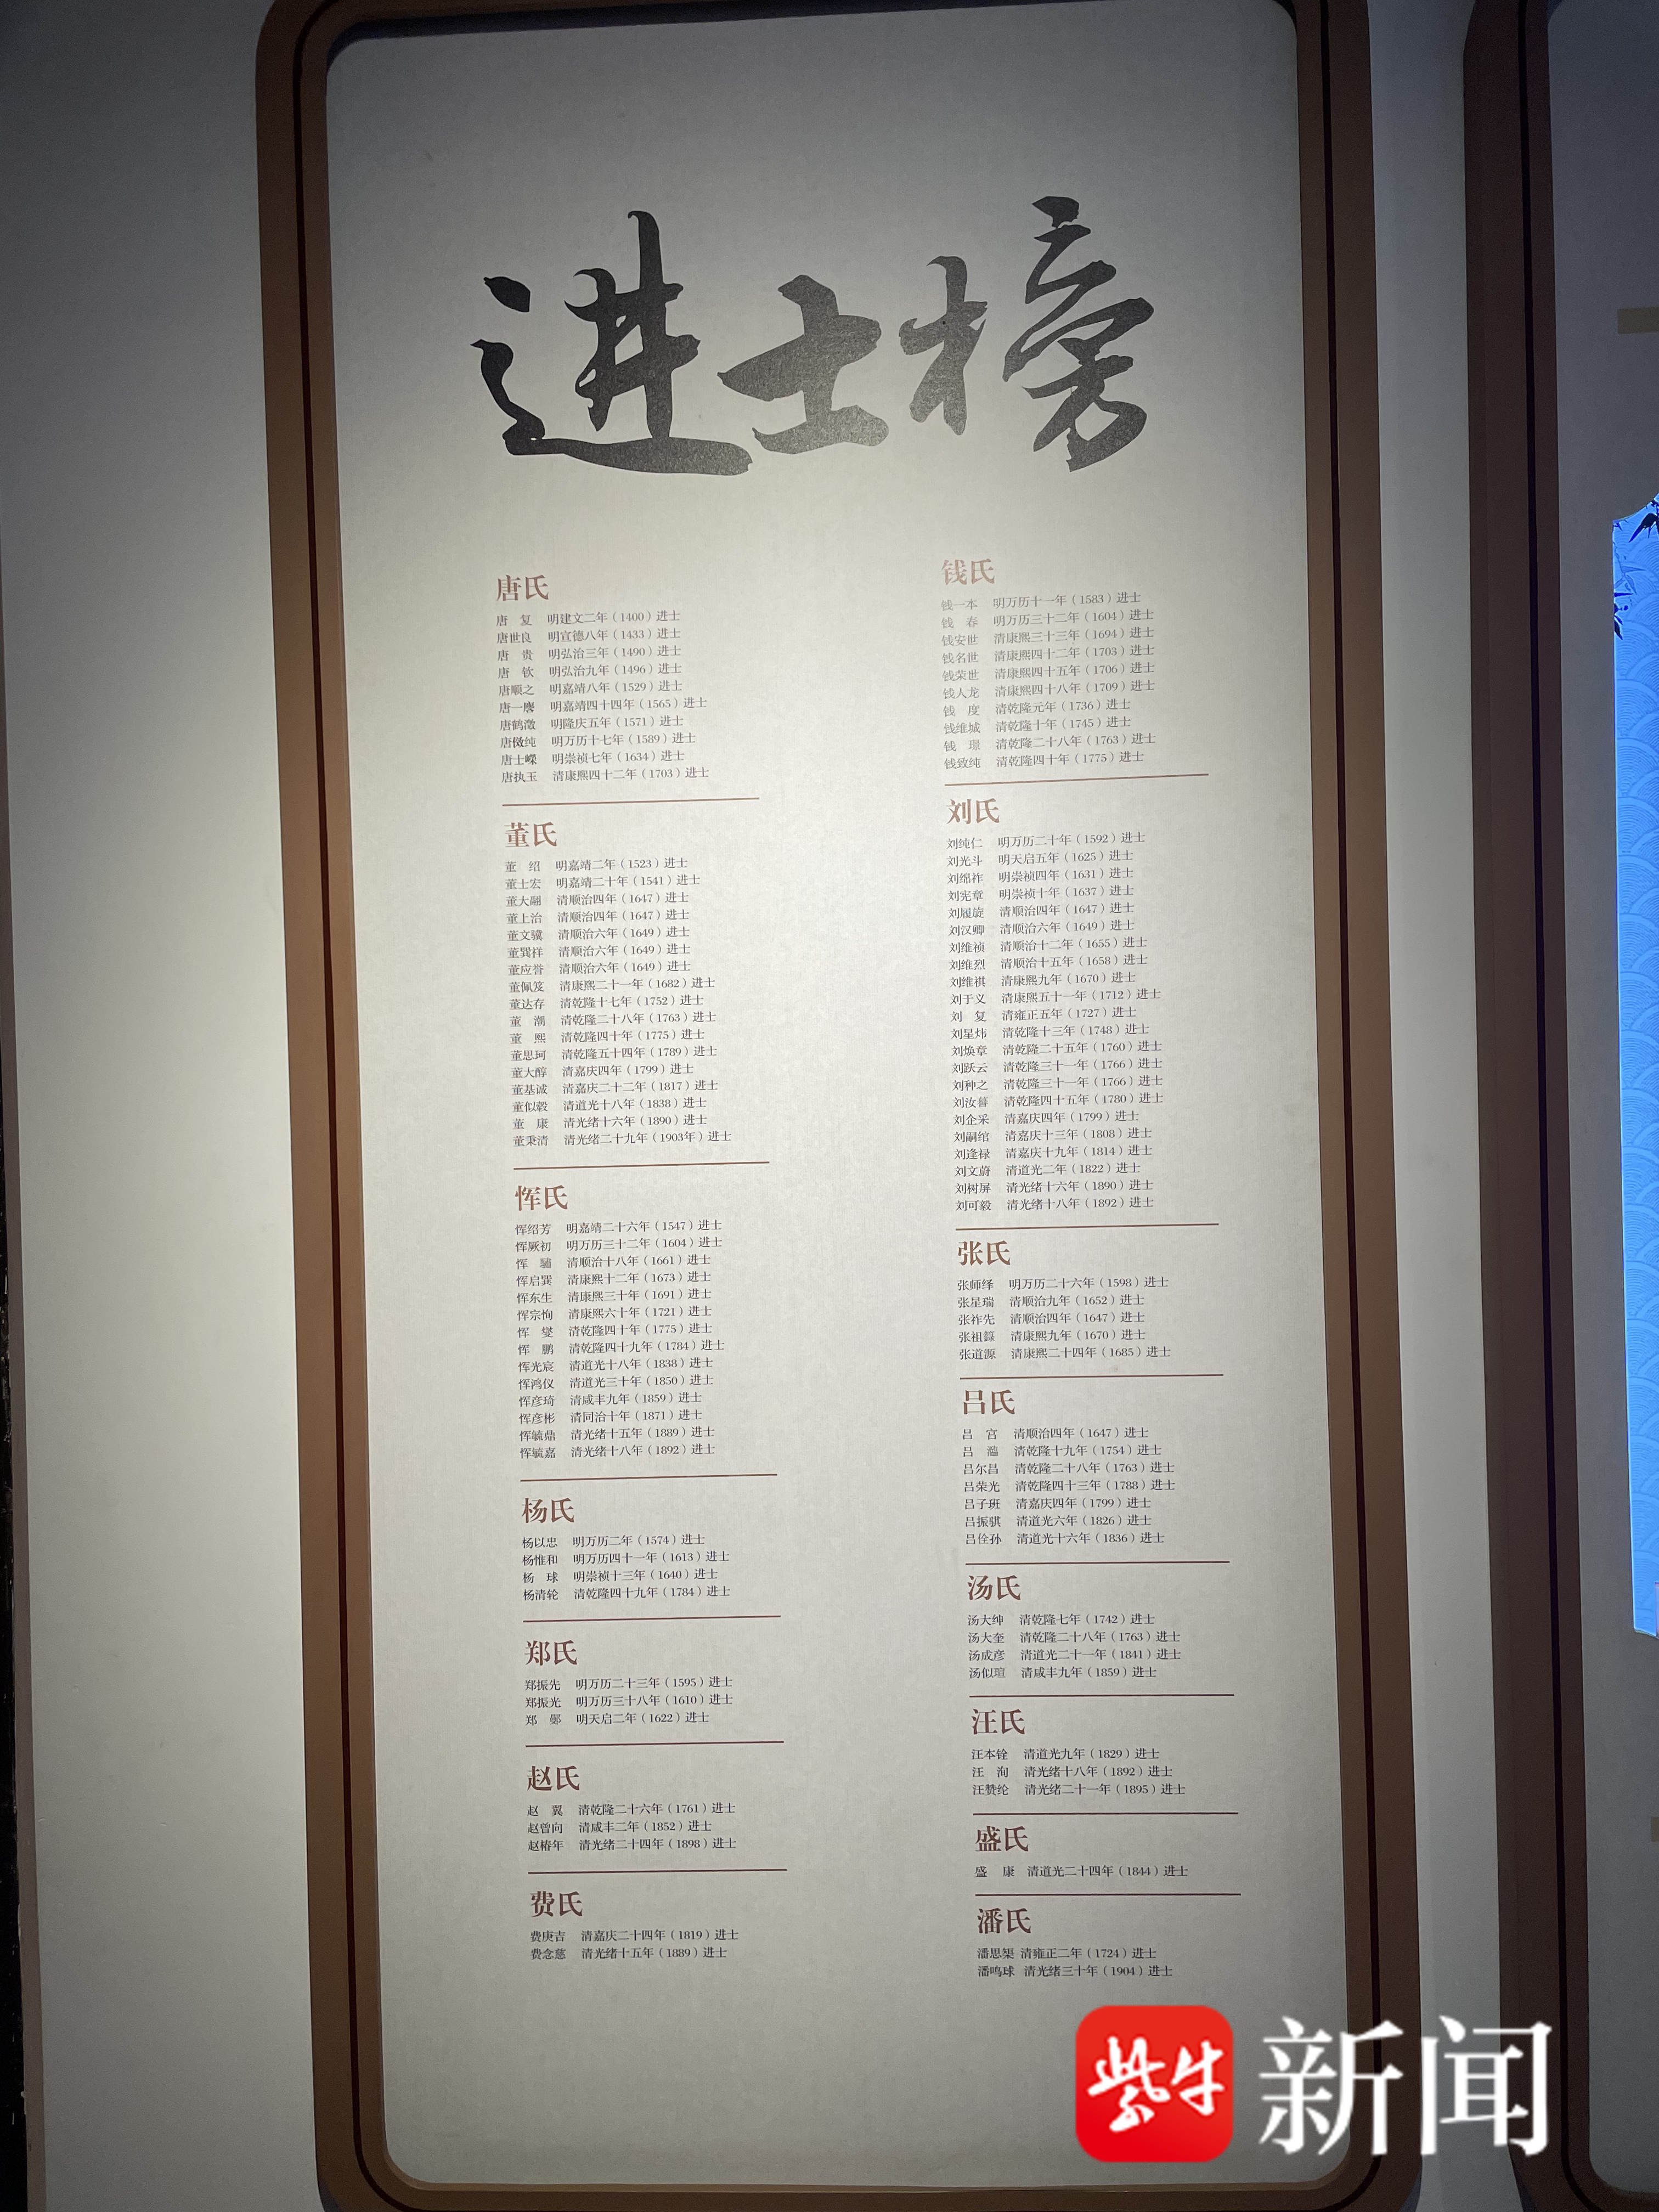 进士榜
唐氏
唐 复 明建文二年（1400）进士
唐世良 明宣德八年（1433）进士
唐 贵 明弘治三年（1490）进士
唐 钦 明弘治九年（1496）进士
唐顺之 明嘉靖八年（1529）进士
唐一麐 明嘉靖四十四年（1565）进士
唐鹤澂 明隆庆五年（1571）进士
唐傚纯 明万历十七年（1589）进士
唐士嵘 明崇祯七年（1634）进士
唐执玉 清康熙四十二年（1703）进士
董氏
董 绍 明嘉靖二年（1523）进士
董士宏 明嘉靖二十年（1541）进士
董大翮 清顺治四年（1647）进士
董上治 清顺治四年（1647）进士
董文骥 清顺治六年（1649）进士
董巽祥 清顺治六年（1649）进士
董应誉 清顺治六年（1649）进士
董佩笈 清康熙二十一年（1682）进士
董达存 清乾隆十七年（1752）进士
董 潮 清乾隆二十八年（1763）进士
董 熙 清乾隆四十年（1775）进士
董思珂 清乾隆五十四年（1789）进士
董大醇 清嘉庆四年（1799）进士
董基诚 清嘉庆二十二年（1817）进士
董似穀 清道光十八年（1838）进士
董 康 清光绪十六年（1890）进士
董秉清 清光绪二十九年（1903年）进士
恽氏
恽绍芳 明嘉靖二十六年（1547）进士
恽厥初 明万历三十二年（1604）进士
恽 骕 清顺治十八年（1661）进士
恽启巽 清康熙十二年（1673）进士
恽东生 清康熙三十年（1691）进士
恽宗恂 清康熙六十年（1721）进士
恽 燮 清乾隆四十年（1775）进士
恽 鹏 清乾隆四十九年（1784）进士
恽光宸 清道光十八年（1838）进士
恽鸿仪 清道光三十年（1850）进士
恽彦琦 清咸丰九年（1859）进士
恽彦彬 清同治十年（1871）进士
恽毓鼎 清光绪十五年（1889）进士
恽毓嘉 清光绪十八年（1892）进士
杨氏
杨以忠 明万历二年（1574）进士
杨惟和 明万历四十一年（1613）进士
杨 球 明崇祯十三年（1640）进士
杨清轮 清乾隆四十九年（1784）进士
郑氏
郑振先 明万历二十三年（1595）进士
郑振光 明万历三十八年（1610）进士
郑 鄤 明天启二年（1622）进士
赵氏
赵 翼 清乾隆二十六年（1761）进士
赵曾向 清咸丰二年（1852）进士
赵椿年 清光绪二十四年（1898）进士
费氏
费庚吉 清嘉庆二十四年（1819）进士
费念慈 清光绪十五年（1889）进士
钱氏
钱一本 明万历十一年（1583）进士
钱 春 明万历三十二年（1604）进士
钱安世 清康熙三十三年（1694）进士
钱名世 清康熙四十二年（1703）进士
钱荣世 清康熙四十五年（1706）进士
钱人龙 清康熙四十八年（1709）进士
钱 度 清乾隆元年（1736）进士
钱维城 清乾隆十年（1745）进士
钱 璟 清乾隆二十八年（1763）进士
钱致纯 清乾隆四十年（1775）进士
刘氏
刘纯仁 明万历二十年（1592）进士
刘光斗 明天启五年（1625）进士
刘绵祚 明崇祯四年（1631）进士
刘宪章 明崇祯十年（1637）进士
刘履旋 清顺治四年（1647）进士
刘汉卿 清顺治六年（1649）进士
刘维祯 清顺治十二年（1655）进士
刘维烈 清顺治十五年（1658）进士
刘维祺 清康熙九年（1670）进士
刘于义 清康熙五十一年（1712）进士
刘 复 清雍正五年（1727）进士
刘星炜 清乾隆十三年（1748）进士
刘焕章 清乾隆二十五年（1760）进士
刘跃云 清乾隆三十一年（1766）进士
刘种之 清乾隆三十一年（1766）进士
刘汝謩 清乾隆四十五年（1780）进士
刘企采 清嘉庆四年（1799）进士
刘嗣绾 清嘉庆十三年（1808）进士
刘逢禄 清嘉庆十九年（1814）进士
刘文蔚 清道光二年（1822）进士
刘树屏 清光绪十六年（1890）进士
刘可毅 清光绪十八年（1892）进士
张氏
张师绎 明万历二十六年（1598）进士
张星瑞 清顺治九年（1652）进士
张祚先 清顺治四年（1647）进士
张祖 清康熙九年（1670）进士
张道源 清康熙二十四年（1685）进士
吕氏
吕 宫 清顺治四年（1647）进士
吕 清乾隆十九年（1754）进士
吕尔昌 清乾隆二十八年（1763）进士
吕荣光 清乾隆四十三年（1788）进士
吕子班 清嘉庆四年（1799）进士
吕振骐 清道光六年（1826）进士
吕佺孙 清道光十六年（1836）进士
汤氏
汤大绅 清乾隆七年（1742）进士
汤大奎 清乾隆二十八年（1763）进士
汤成彦 清道光二十一年（1841）进士
汤似瑄 清咸丰九年（1859）进士
汪氏
汪本铨 清道光九年（1829）进士
汪 洵 清光绪十八年（1892）进士
汪赞纶 清光绪二十一年（1895）进士
盛氏
盛 康 清道光二十四年（1844）进士
潘氏
潘思榘 清雍正二年（1724）进士
潘鸣球 清光绪三十年（1904）进士
紫牛 新闻